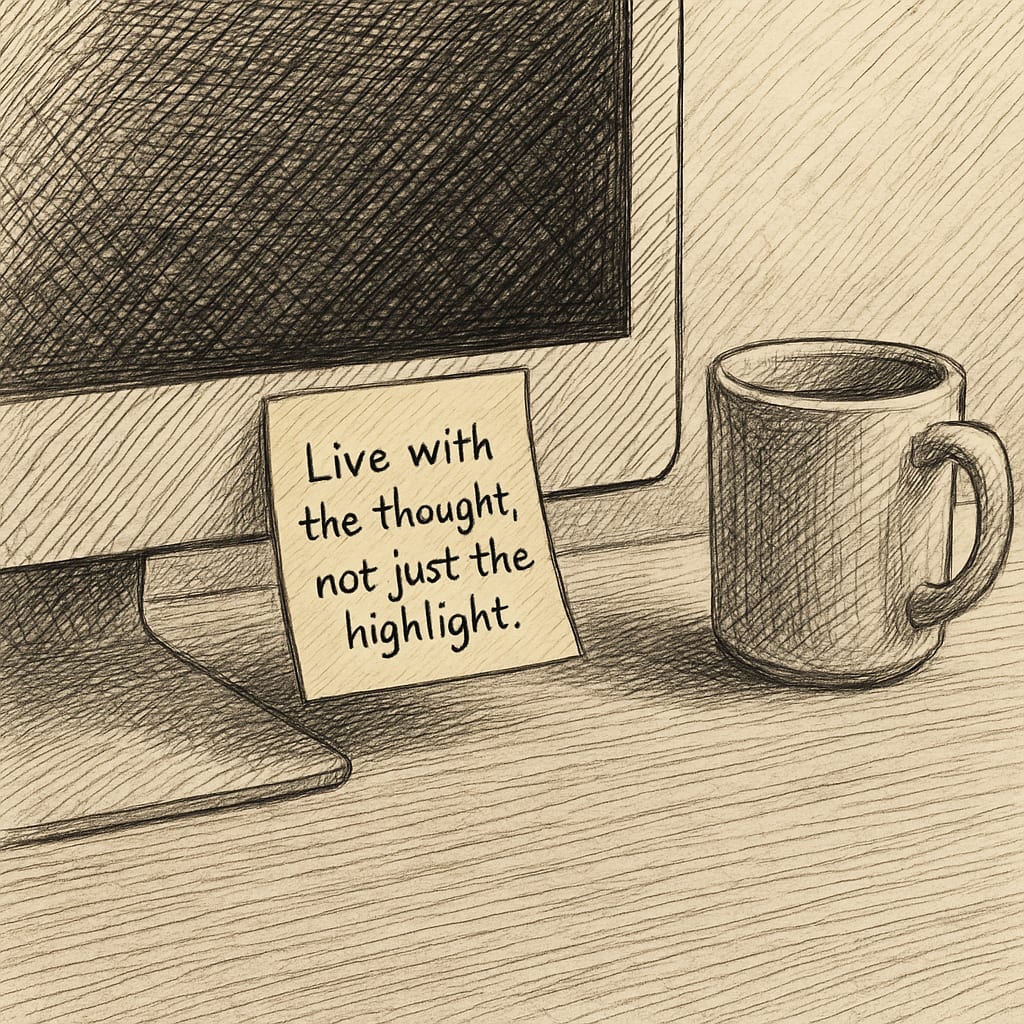 Live with
the thought,
not just the
highlight.